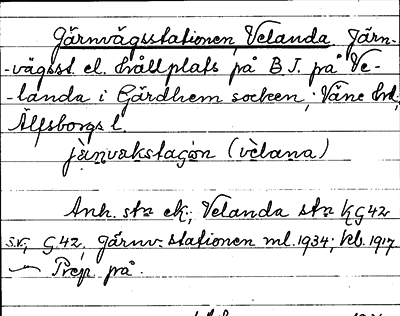 Järnvägsstationen, Velanda Järn-
-vägsst. el. hållplats på B J. på Ve-
-landa i Gärdhem socken; Väne hd,
Älfsborgs l.
jànvəkstaʃón (vèlana)
Anh. str ek.; Velanda str K G 42
s.v.; G 42, Järnv. stationen ml. 1934; hfl. 1917
Prep på.